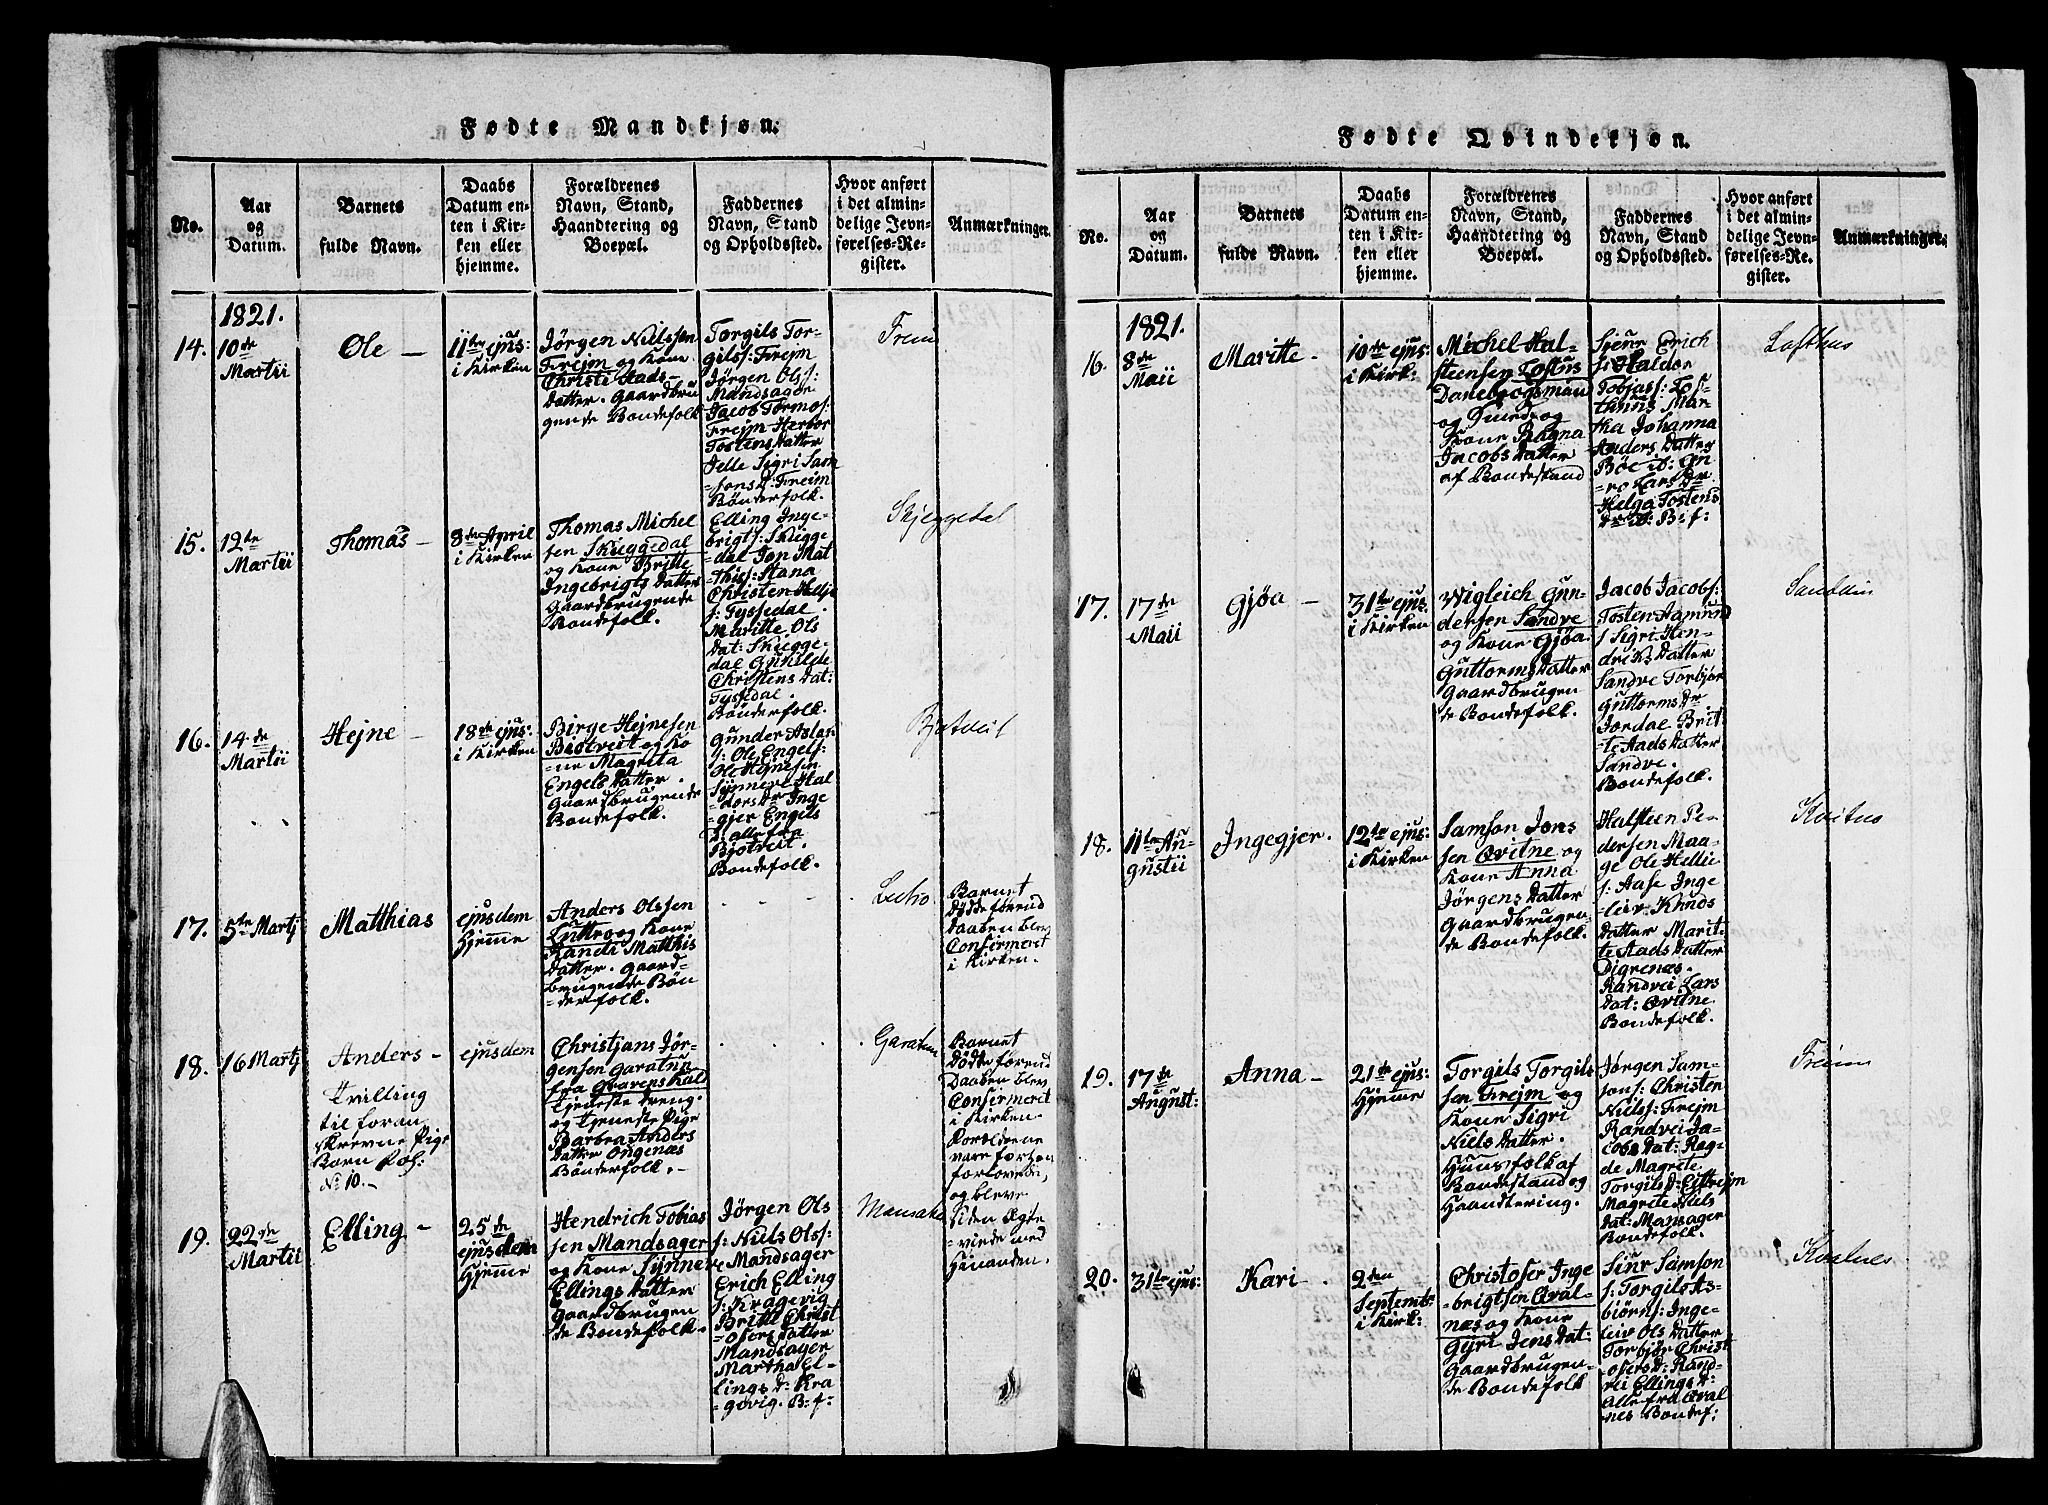 Fødte Mandkjøn.
No.
Aar
og
Datum.
Barnets
fulde Navn.
Daabs
Datum en-
ten i Kir-
ken eller
hjemme.
Forældrenes
Navn, Stand,
Haandtering og
Boepæl.
Faddernes
Navn, Stand
og Opholdssted.
Hvor anført
i det almin-
delige Jevn-
førelses-Re-
gister.
Anmærkninger.
1821.
14.
10de
Martii
Ole –
11te ejus:
i Kirken
Jörgen Nielssen
Frejm og Kone
Christi Aads-
datter. Gaardbru
gende Bondefolk
Torgils Tor-
gilss: Frejm
Jörgen Olss:
Mandsager
Jacob Tormos:
Frejm Herbor
Tostens datter
Jelle Sigri Sam
=sons d: Freim
Bönderfolk.
Freim
15.
12te
Martii
Thomas –
8de April
i Kirken
Thomas Michel
sen Skieggedal
og Kone Britte
Ingebrigts datter
Gaardbrugende
Bondefolk.
Elling Inge-
brigts: Skiegge-
dal Jon Mat
=thiss: Stana
Christen Hellje
s: Tyssedal.
Maritte Ols
dat: Skiegge-
dal Gunilde
Christens dat:
Tyssedal.
Bönderfolk.
Skjeggedal
16.
14de
Martii
Hejne –
18de ejus:
i Kirken
Birge Hejnesen
Biotveit og Ko
=ne Magreta
Engels datter.
Gaardbrugende
Bondefolk.
Gunder Aslac
s: Ole Engels:
Ole Hejnesen
Synneve Hal
dors dr Inge
=gjer Engels
d: alle fra
Bjotveit.
Bondefolk.
Bjotveit
17.
5te Martj
Matthias
ejusdem
Hjemme
Anders Olssen
Luttro og Kone
Randi Matthis
datter. Gaard-
brugende Bön
=derfolk.
Lutro
Barnet
dödde forend
Daaben blev
Confirmerit
i Kirken.
18.
16 Martj
Anders –
Tvilling
til foran
skrevne Pige
Barn Pag:
No 10. –
ejusdem
Christjans Jör-
gensen Garatun
fra Qvarens Kald
Tjeneste dreng.
og Tjeneste Pige
Barbra Anders
datter Ongenæs
Bönderfolk. –
Garatun
Barnet
dödde forend
Daaben blev
Confirmerit
i Kirken.
Foreldrene
vare forhen
forlovede,
og bleve
siden Ægte
=viede med
hinanden.
19.
22de
Martii
Elling –
25de
ejusdem
Hjemme
Hendrich Tobias
sen Mandsager
og Kone Synneve
Ellings datter
Gaardbrugen
de Bondefolk.
Jörgen Ols
s: Niels Olss:
Mandsager
Erich Elling
s: Kragevig
Britte Christ
=ofers datter
Mandsager
Martha El-
lings d: Kra
=gevig. B: f:
Mansaker
Fødte Qvindekjøn.
No.
Aar
og
Datum.
Barnets
fulde Navn.
Daabs
Datum en-
ten i Kir-
ken eller
hjemme.
Forældrenes
Navn, Stand,
Haandtering og
Boepæl.
Faddernes
Navn, Stand
og Opholdssted.
Hvor anført
i det almin-
delige Jevn-
førelses-Re-
gister.
Anmærkninger.
1821.
16.
8de
Maii
Maritte –
10de ejus:
i Kirk:
Michel Hal-
steensen Tostus
Danebrogsmand
og
Kone Ragna
Jacobs datter
af Bondestand
Sjeur Erich
s: Haldor
Tobjass: Tos-
thuus Mar-
tha Johanna
Anders datter
Helga Tostens
Lofthus
17.
17de
Maii
Gjøa –
31te ejus:
i Kirken
Wigleich Gun-
dersen Sandve
og Kone Gjøa
Guttorms datter
Gaardbrugen
de Bondefolk.
Jacob Jacobs:
Tosten Aamund
s: Sigri Hen-
drichs datter
Sandve Torbjör
Guttorms dr
Jordal Brit-
te Aads datter
Sandve.
Bondefolk.
Sandvin
18.
11te Au-
gustii
Ingegjer.
12te ejus:
i Kirken
Samson Jons
sen Qvitne og
Kone Anna
Jörgens datter
Gaardbrugen-
de Bondefolk.
Halsteen Pe-
dersen Maa-
ge Ole Hellie
s: Aase Inge
leiv Knuds
datter Marit-
te Aads datter
Digrenæs.
Randvei Lars
dat: Qvitne
Bondefolk.
Kvitno
19.
17de
August:
Anna –
21de ejus:
Hjemme
Torgils Torgils
sen Frejm og
Kone Sigri
Niels datter.
Huusfolk af
Bondestand og
Haandtering.
Jörgen Sam-
sons: Christen
Niels: Frejm
Randvei Ja-
cobs dat: Rag-
de Magrete
Torgils d: Eittrejm
Magrete Niels
dat: Mansager
Bondefolk.
Freim
20.
31te ejus:
Kari –
2den
Septemb:
i Kirk:
Christofer Inge
brigtsen Qval-
næs og Kone
Gyri Jens dat:
Gaardbrugen-
de Bondefolk
Siur Samson
s: Torgils As-
biörns: Inge-
leiv Ols datter
Torbjör Christ
ofers d: Rand-
vei Ellings d:
Alle fra Qval
nes Bondef:
Kvalnes